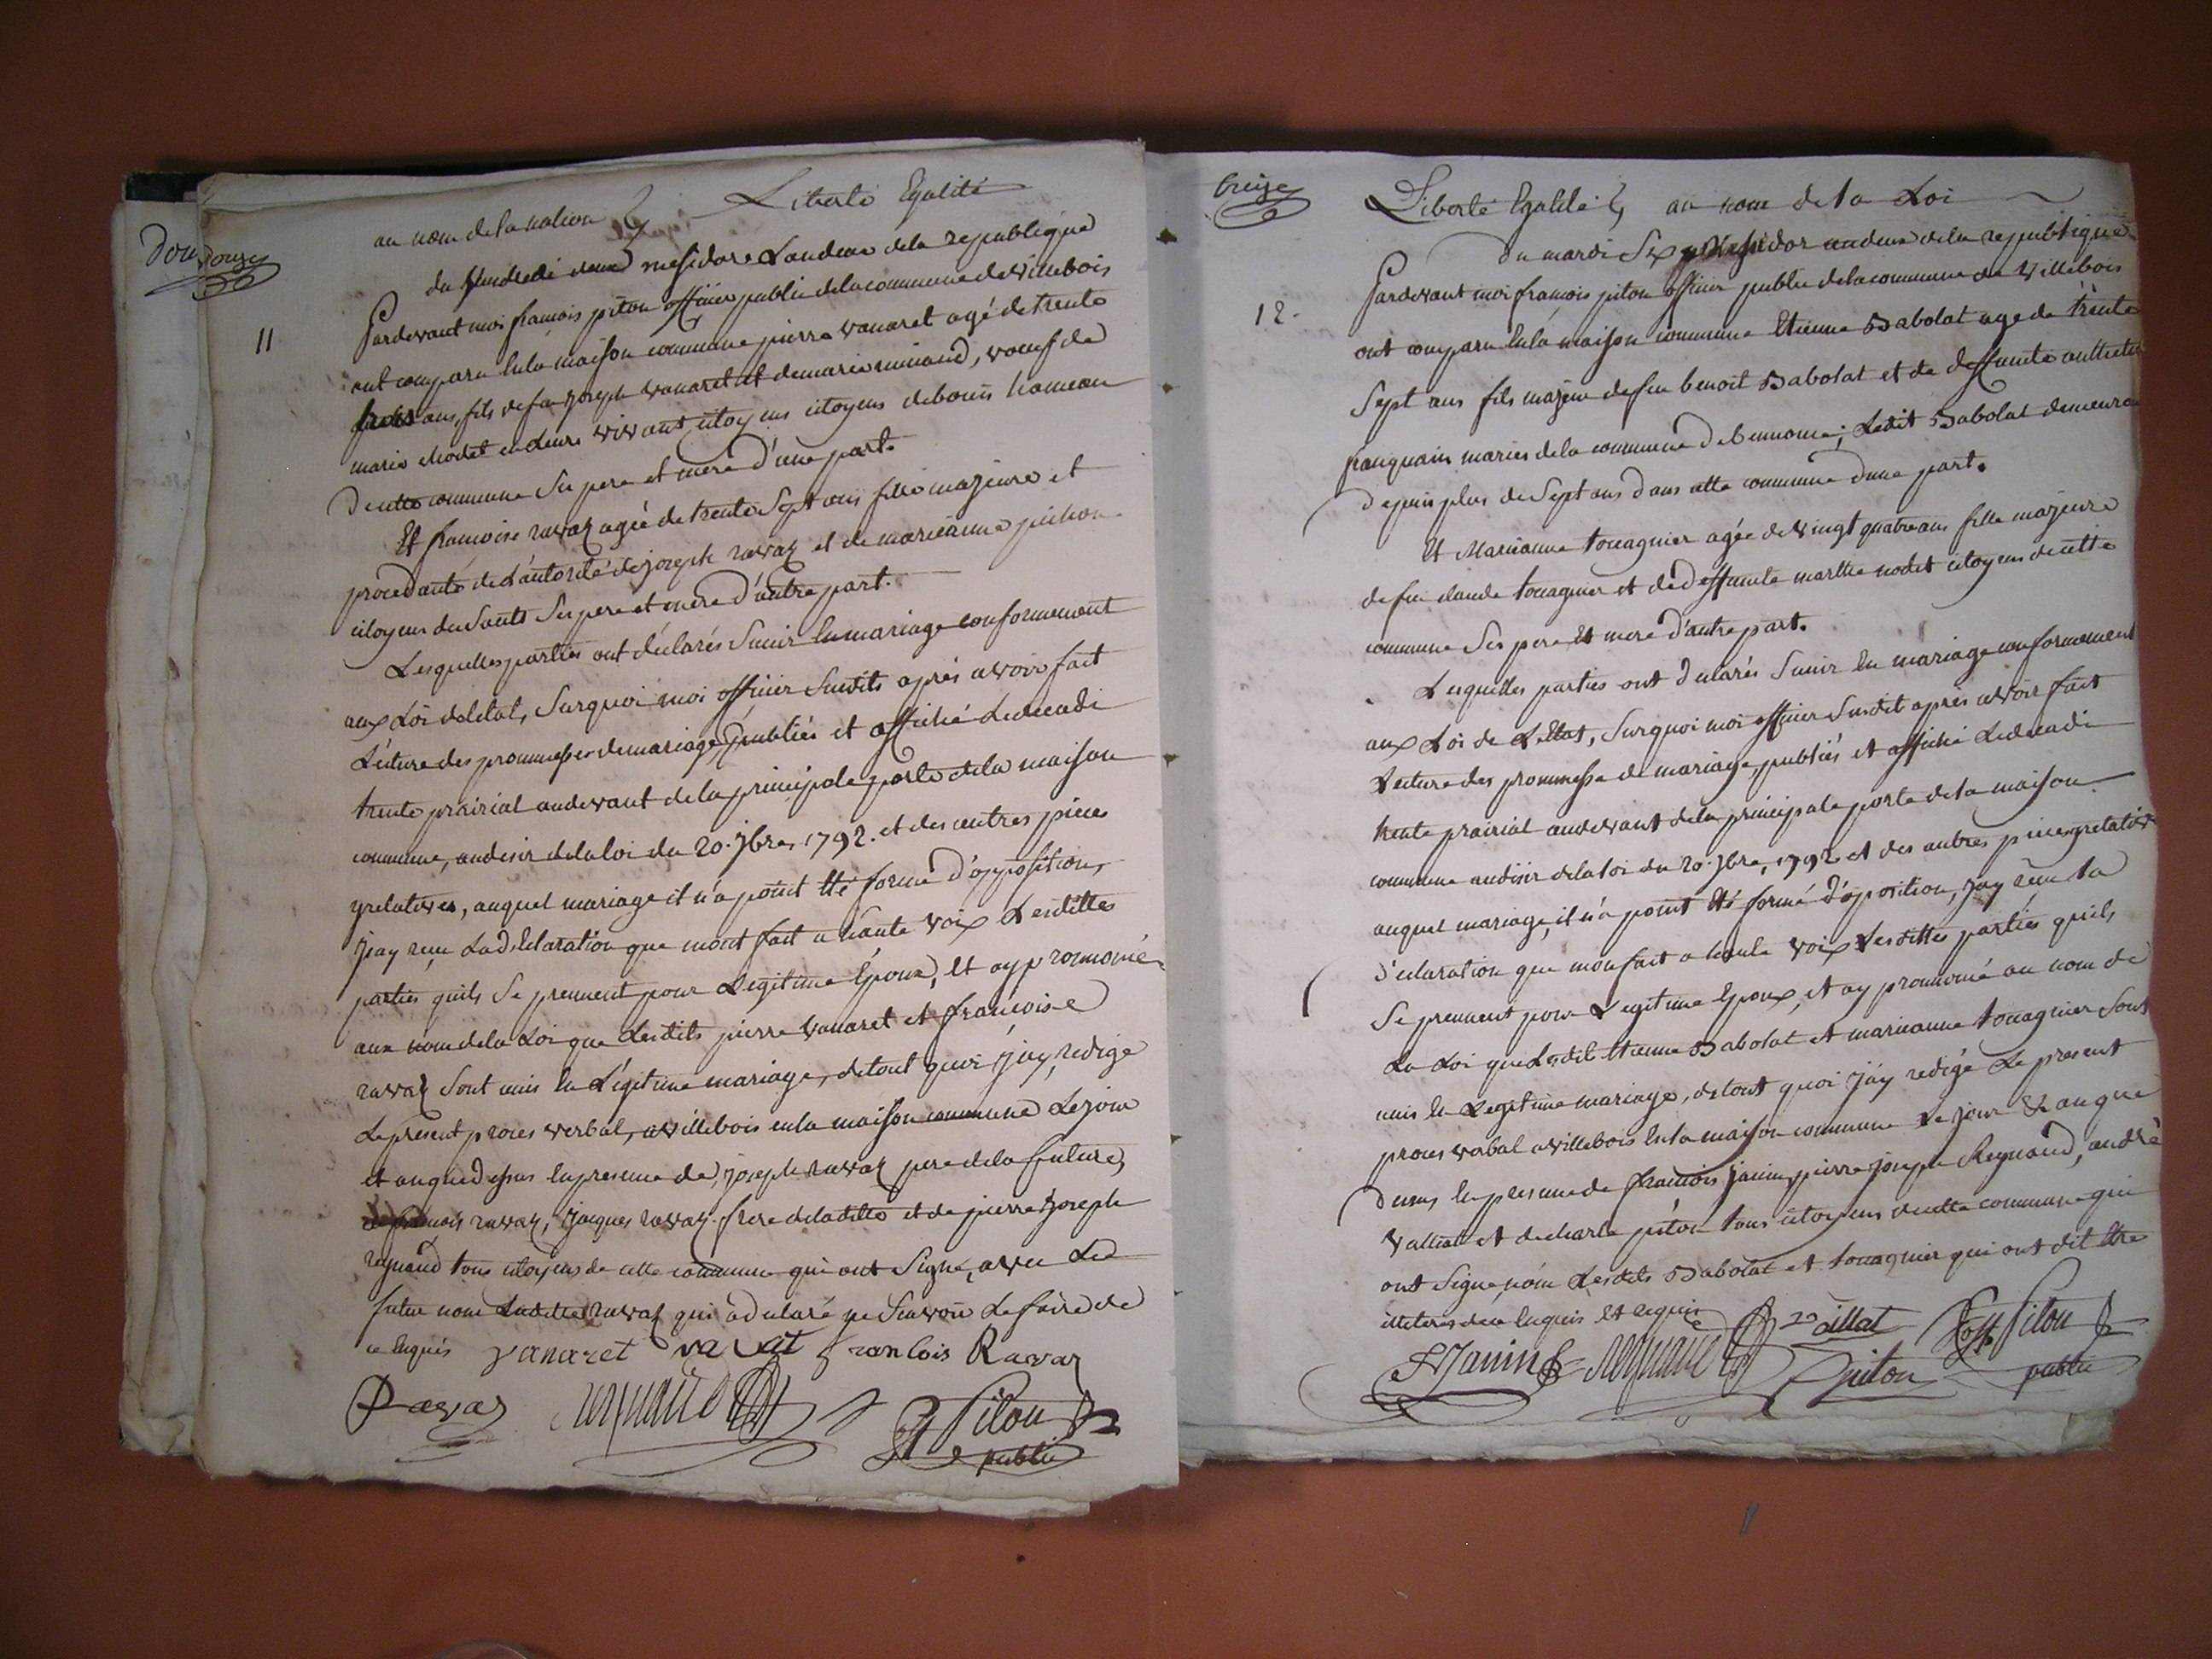 douze
au nom de la nation Liberté Egalité
du vendredi deux mesidore Landeux de la republique
11
Pardevant moi francois piton officier public de la commune de villebois
ont comparu en la maison commune pierre vanaret agé de trente
trois ans, fils de feu joseph vanaret et de marie, voeuf de
marie chodet en leurs vivant citoyens citoyens de bouis hameau
de cette commune Ses pere et mere d'une part.
Et francoise ravaz agée de trente Sept ans fille majeure et
procedante de L'autorité de joseph ravaz et de marieanne pichon
citoyens du Sault Ses pere et mere d'autre part.
Lesquelles parties ont déclarés S'unir en mariage conformement
aux Loi de l'état, Surquoi moi officier Susdits après avoir fait
Lecture des prommesses de mariage, publiés et affiché Le decadi
trente prairial audevant de la principale porte de la maison
commune, au desir de la loi du 20. 7bre, 1792. et des autres pieces
y relatives, auquel mariage il n'a point été formé d'opposition,
j'ay reçu La déclaration que m'ont fait a haute voix Lesdittes
parties quils Se prennent pour Legitime Epoux, Et ay prononcé
aux nom de la Loi que Lesdits pierre vanaret et francoise
ravaz Sont unis en Légitime mariage, de tout quoi j'ay redigé
Le present proces verbal, a villebois en la maison commune Le jour
et an que dessus en presence de joseph ravaz pere de la future,
de francois ravaz, jacques ravaz frere de laditte et de pierre joseph
reynaud tous citoyens de cette commune qui ont Signé, avec Led
futur non Laditte ravaz qui a déclaré ne Scavoir Le faire de
ce Enquis vanaret ravat francois Ravaz
Ravaz reynaud Piton
public
treize
Liberté Egalité au nom de la Loi
du mardi Six mesidor an deux de la republique
12.
Pardevant moi francois piton officier public de la commune de villebois
ont comparu en la maison commune Etienne Babolat age de trente
Sept ans fils majeur de feu benoit Babolat et de deffunte
mariés de la commune de benonce; Ledit Babolat demeurant
depuis plus de Sept ans dans cette commune d'une part.
Et Marieanne touagnier agée de vingt quatre ans fille majeure
de feu claude touagnier et de deffunte marthe nodet citoyens de cette
commune Ses pere Et mere d'autre part.
Lesquelles parties ont declarés S'unir En mariage conformement
aux Loi de L'Etat, Surquoi moi officier Susdit après avoir fait
Lecture des prommesse de mariage, publiés et affiché Le decadi
trente prairial audevant de la principale porte de la maison
commune au desir de la loi du 20. 7bre, 1792 et des autres pieces y relatives
auquel mariage, il n'a point été formé d'oposition, j'ay reçu la
déclaration que m'on fait a haute voix Lesdittes parties quils
Se prennent pour Legitime Epoux, et ay prononcé au nom de
La Loi que Lesdit Etienne Babolat et marieanne touagnier Sont
unis En Legitime mariage, de tout quoi j'ay redigé Le present
proces verbal a villebois En la maison commune Le jour & an que
dessus En presence de francois janin, pierre joseph Reynaud, andré
valliat et de charle piton tous citoyens de cette commune qui
ont Signé, non Lesdits Babolat et touagnier qui ont dit Etre
illeterés de ce Enquis et requis
Janin reynaud vallat Piton
piton public